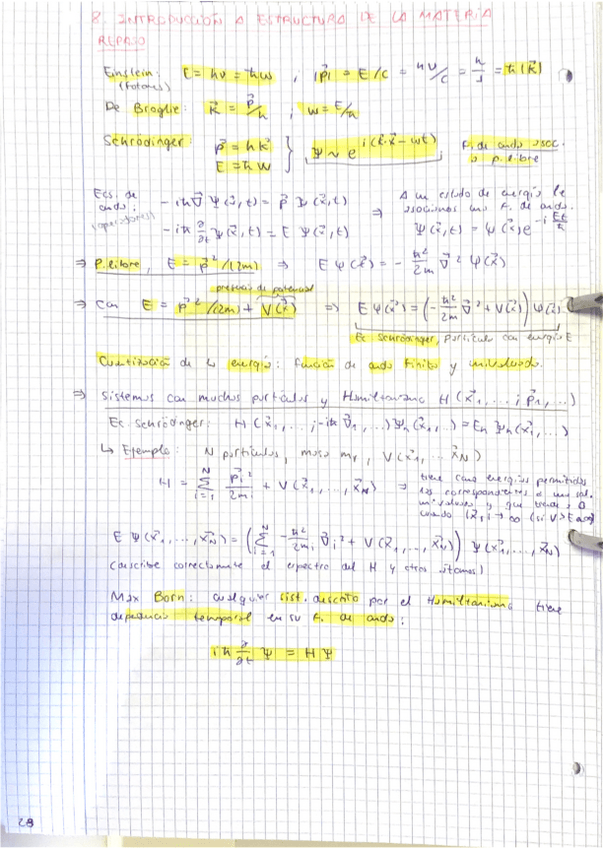 8. INTRODUCCIÓN A ESTRUCTURA DE LA MATERIA
REPASO
Einstein: E = hν = ħω ; |p⃗| = E/c = hν/c = h/λ = ħ|k⃗|
(fotones)
De Broglie: k⃗ = p⃗/ħ ; ω = E/ħ
Schrödinger: p⃗ = ħk⃗ } Ψ ~ e^{i(k⃗·x⃗ - ωt)} F. de onda asoc.
E = ħω a p. libre
Ecs. de - iħ∇⃗ Ψ(x⃗,t) = p⃗ Ψ(x⃗,t) A un estado de energía le
onda: ⇒ asociamos una F. de onda.
(operadores) - iħ ∂/∂t Ψ(x⃗,t) = E Ψ(x⃗,t) Ψ(x⃗,t) = ψ(x⃗) e^{-i Et/ħ}
⇒ P. libre, E = p⃗²/(2m) ⇒ E ψ(x⃗) = - ħ²/2m ∇⃗² ψ(x⃗)
presencia de potencial
⇒ Con E = p⃗²/(2m) + V(x⃗) ⇒ E ψ(x⃗) = (- ħ²/2m ∇⃗² + V(x⃗)) ψ(x⃗)
Ec Schrödinger, partícula con energía E
Cuantización de la energía: función de onda finita y univaluada.
⇒ Sistemas con muchas partículas y Hamiltoniano H(x⃗₁,...; p⃗₁,...)
Ec. Schrödinger: H(x⃗₁,...; -iħ∇⃗₁,...) Ψₙ(x⃗₁,...) = Eₙ Ψₙ(x⃗₁,...)
↳ Ejemplo: N partículas, masa mᵣ, V(x⃗₁,... x⃗_N)
H = Σ_{i=1}^{N} p⃗ᵢ²/2mᵢ + V(x⃗₁,...,x⃗_N) ⇒ tiene como energías permitidas
las correspondientes a una sol.
univaluada y que tiende a 0
cuando |x⃗ᵢ| → ∞ (si V > E as)
E ψ(x⃗₁,...,x⃗_N) = (Σ_{i=1}^{N} - ħ²/2mᵢ ∇⃗ᵢ² + V(x⃗₁,...,x⃗_N)) ψ(x⃗₁,...,x⃗_N)
(describe correctamente el espectro del H y otros átomos)
Max Born: cualquier sist. descrito por el Hamiltoniano tiene
dependencia temporal en su F. de onda:
iħ ∂/∂t Ψ = H Ψ
28